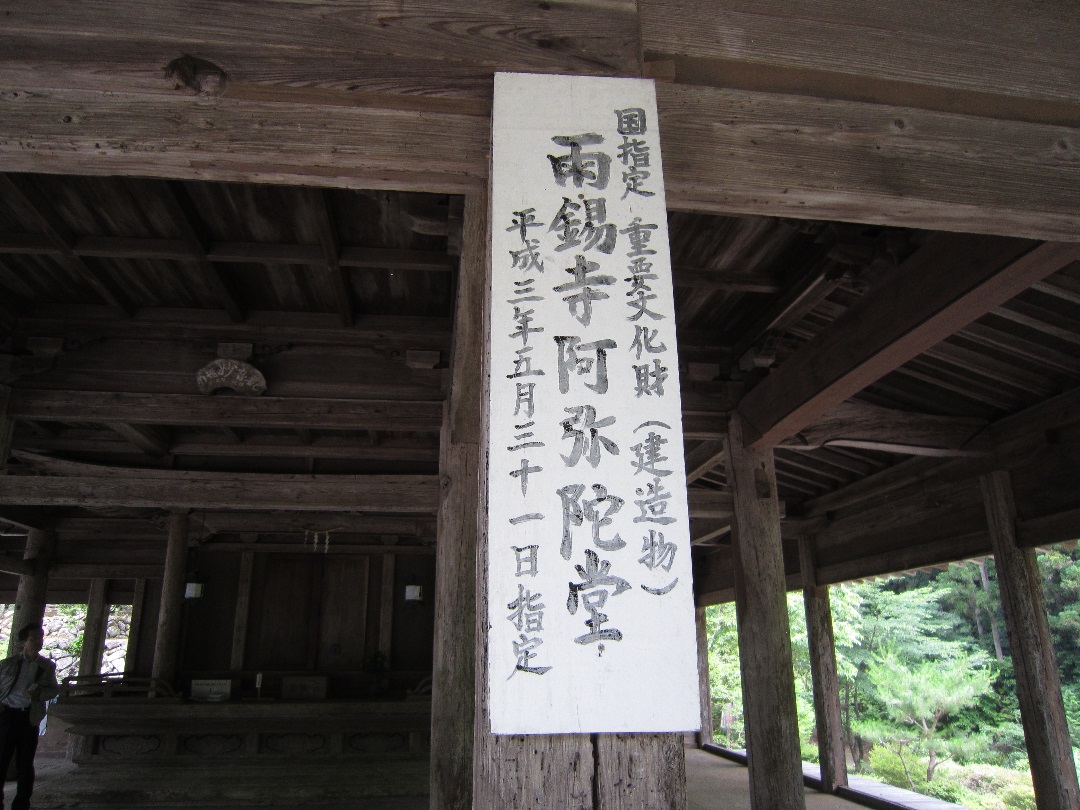 国指定 重要文化財(建造物)
雨錫寺阿弥陀堂
平成三年五月三十一日指定